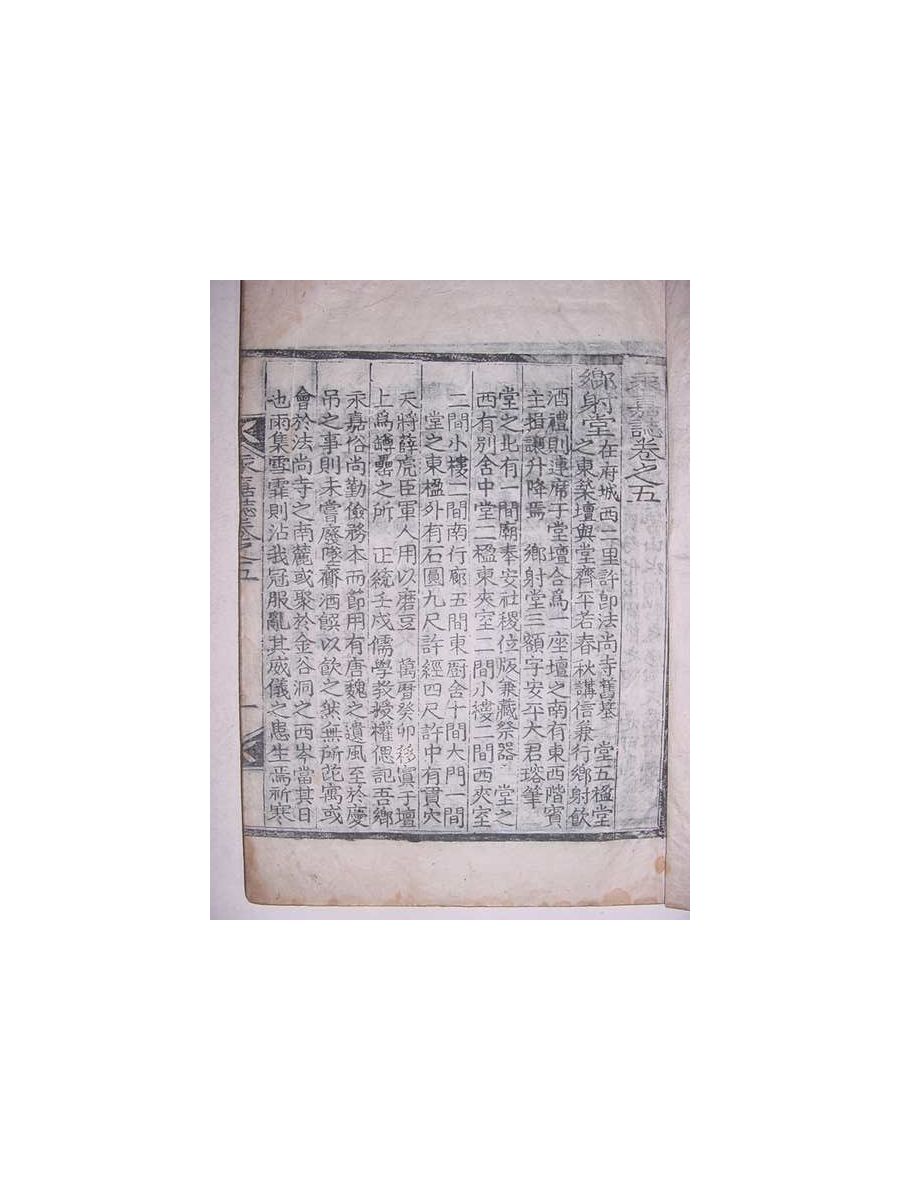 永嘉誌卷之五
鄕射堂在府城西二里許卽法尚寺舊基 堂五楹堂
之東築壇與堂齊平若春秋講信兼行鄕射飮
酒禮則連席于堂壇合爲一座壇之南有東西階賓
主揖讓升降焉 鄕射堂三額字安平大君瑢筆
堂之北有一間廟奉安社稷位版兼藏祭器 堂之
西有別舍中堂二楹東夾室二間小樓二間西夾室
二間小樓二間南行廊五間東廚舍十間大門一間
堂之東楹外有石圓九尺許經四尺許中有貫穴
天將薛虎臣軍人用以磨豆 萬曆癸卯移寘于壇
上爲罇罍之所 正統壬戌儒學敎授權偲記吾鄕
永嘉俗尚勤儉務本而節用有唐魏之遺風至於慶
吊之事則未嘗廢墜齎酒饌以飮之然無所芘寓或
會於法尚寺之南麓或聚於金谷洞之西岑當其日
也雨集雪霏則沾我冠服亂其威儀之患生焉祈寒
永嘉誌卷之五
一